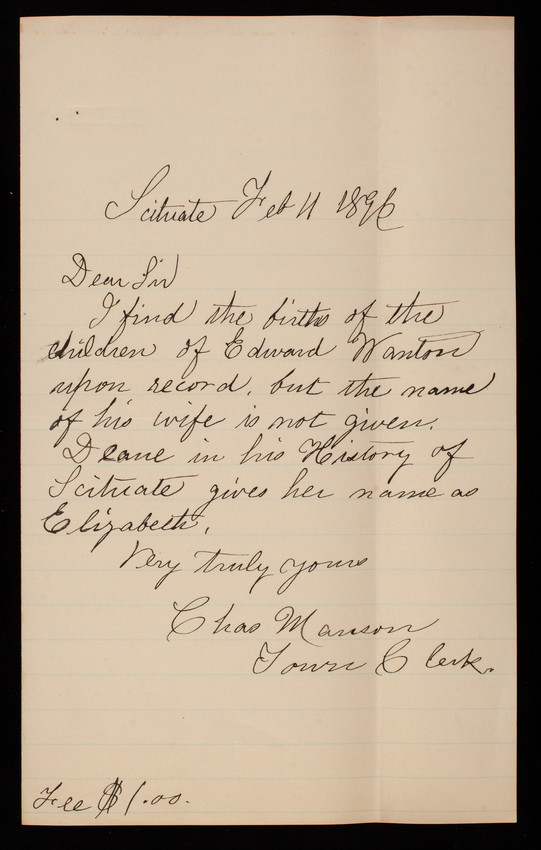 Scituate Feb 11 1896
Dear Sir
I find the births of the
children of Edward Wanton
upon record, but the name
of his wife is not given.
Deane in his History of
Scituate gives her name as
Elizabeth.
Very truly yours
Chas Manson
Town Clerk.
Fee $1.00.